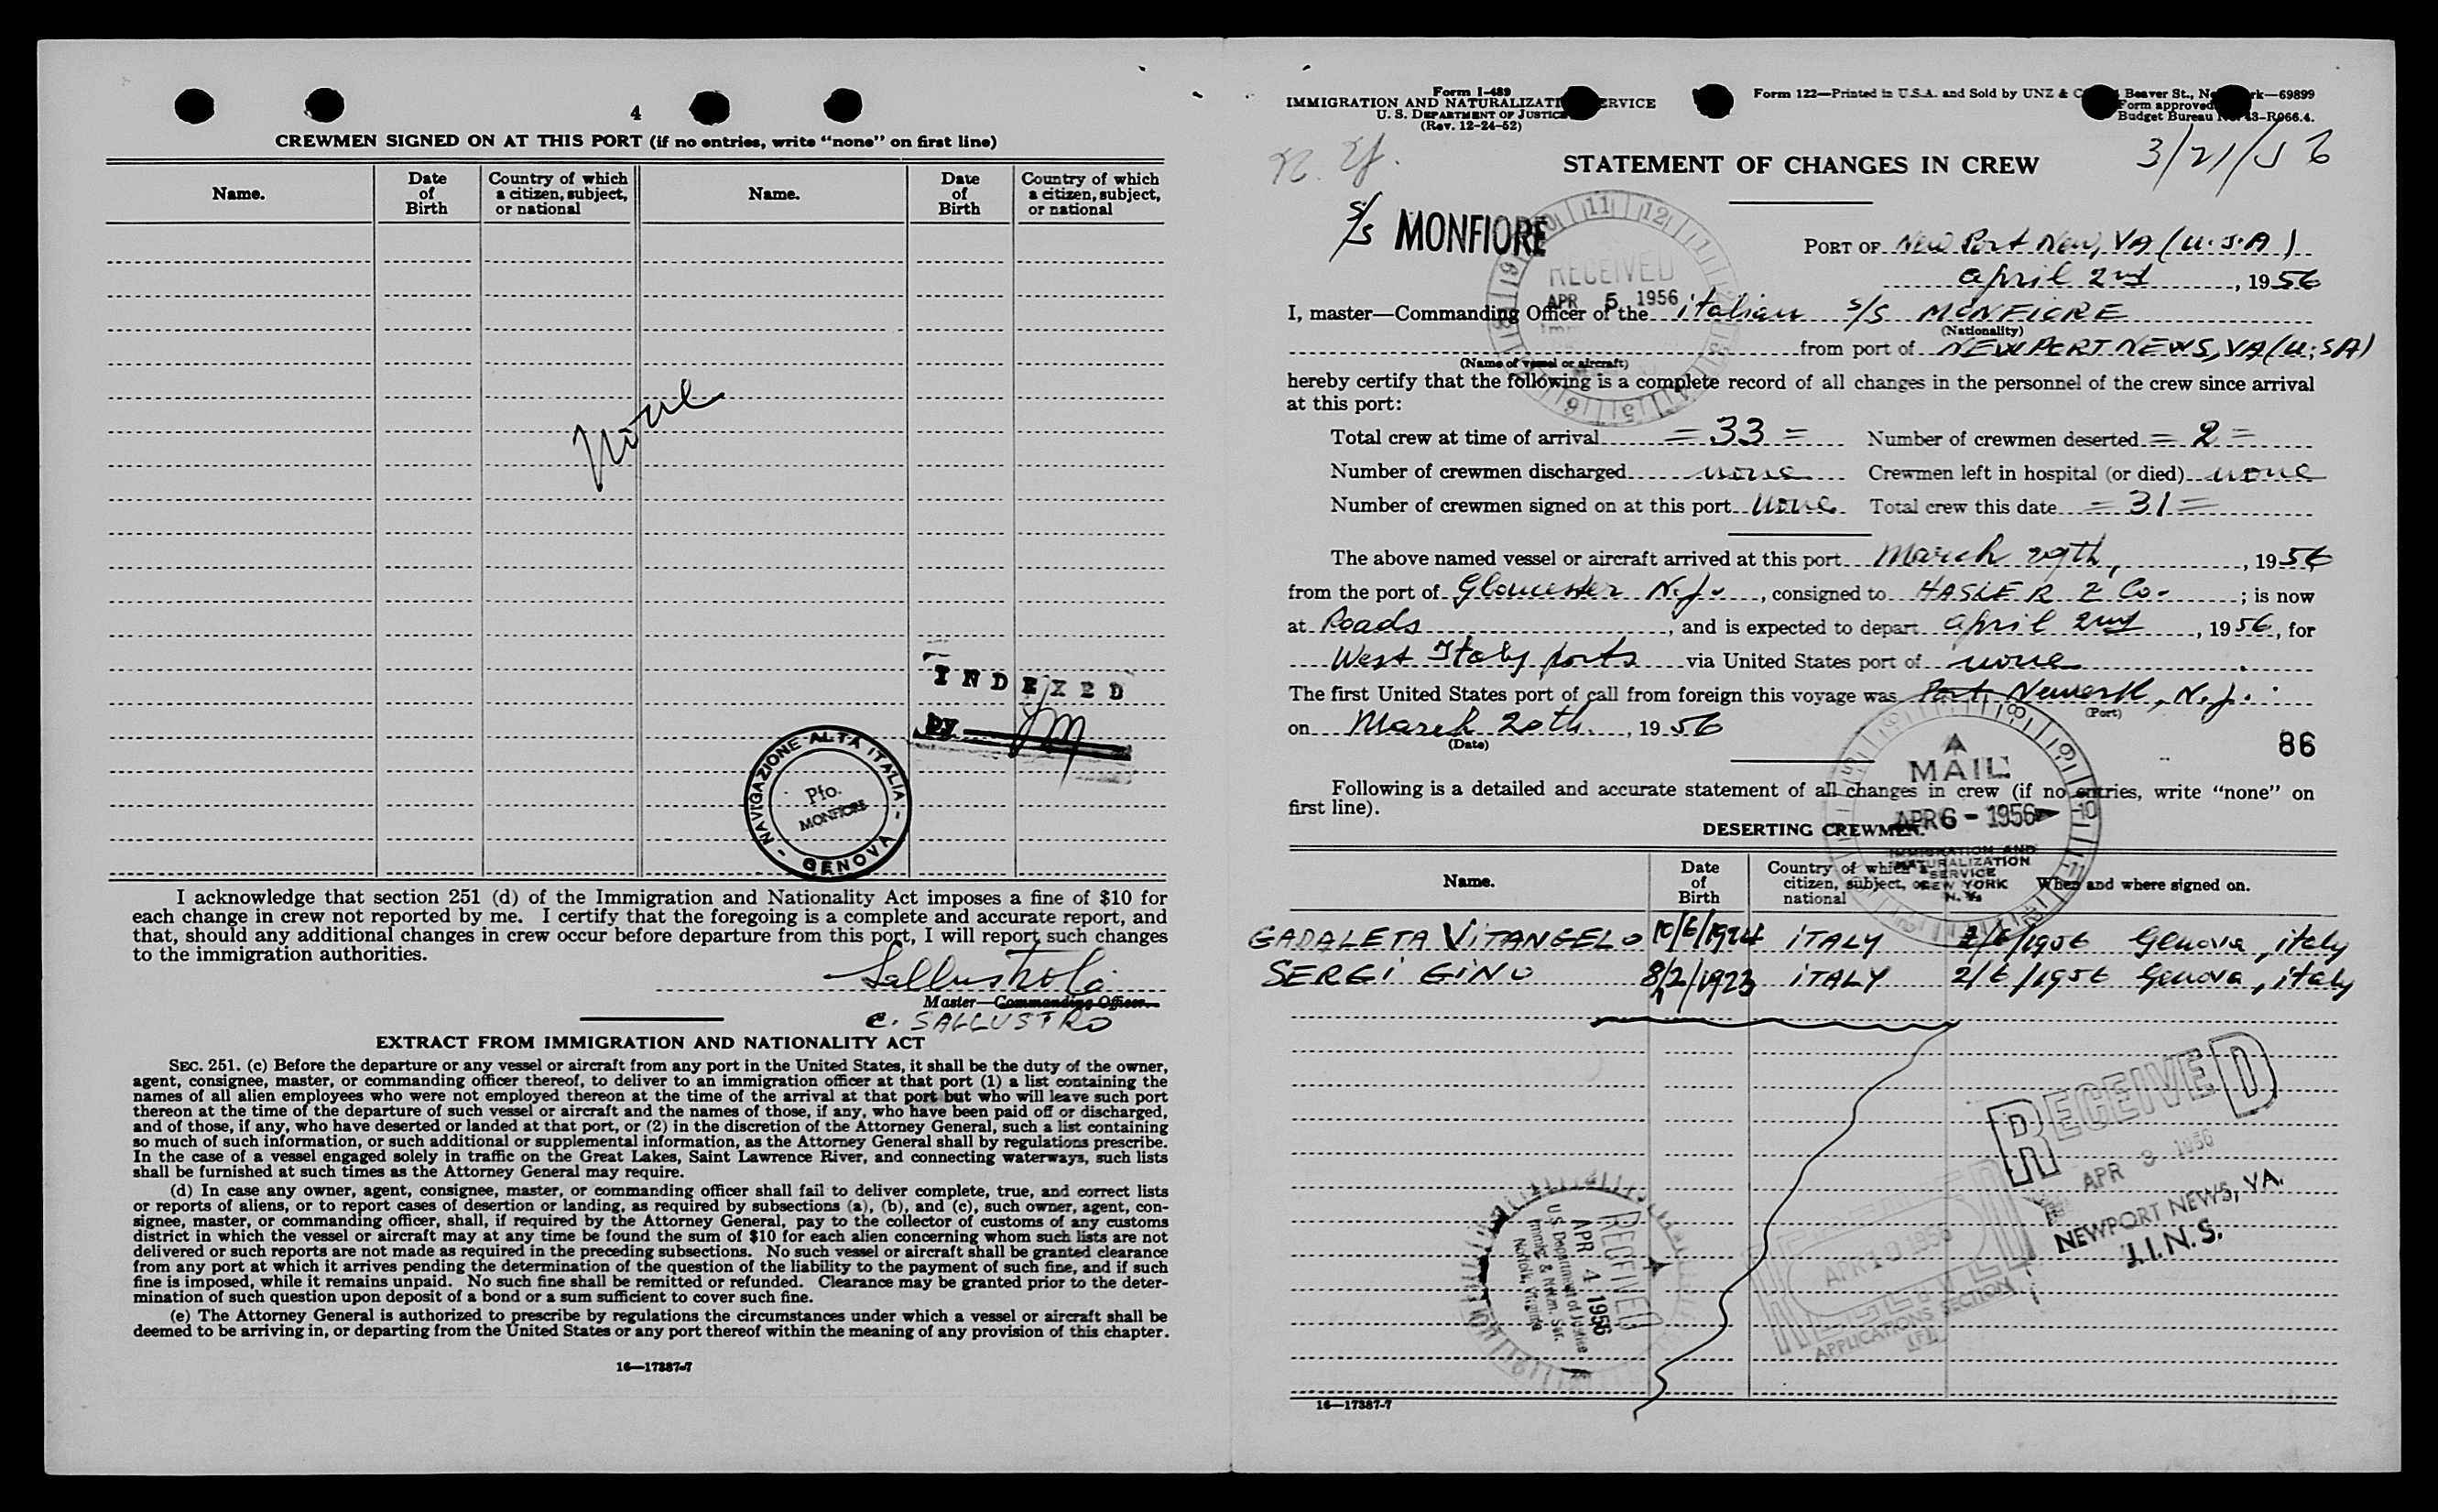 4
CREWMEN SIGNED ON AT THIS PORT (if no entries, write "none" on first line)
Name. Date of Birth Country of which a citizen, subject, or national Name. Date of Birth Country of which a citizen, subject, or national
None
INDEXED
BY
NAVIGAZIONE ALTA ITALIA - GENOVA -
Pfo.
MONFIORE
I acknowledge that section 251 (d) of the Immigration and Nationality Act imposes a fine of $10 for
each change in crew not reported by me. I certify that the foregoing is a complete and accurate report, and
that, should any additional changes in crew occur before departure from this port, I will report such changes
to the immigration authorities.
Master—Commanding Officer.
C. SALLUSTRO
EXTRACT FROM IMMIGRATION AND NATIONALITY ACT
SEC. 251. (c) Before the departure or any vessel or aircraft from any port in the United States, it shall be the duty of the owner,
agent, consignee, master, or commanding officer thereof, to deliver to an immigration officer at that port (1) a list containing the
names of all alien employees who were not employed thereon at the time of the arrival at that port but who will leave such port
thereon at the time of the departure of such vessel or aircraft and the names of those, if any, who have been paid off or discharged,
and of those, if any, who have deserted or landed at that port, or (2) in the discretion of the Attorney General, such a list containing
so much of such information, or such additional or supplemental information, as the Attorney General shall by regulations prescribe.
In the case of a vessel engaged solely in traffic on the Great Lakes, Saint Lawrence River, and connecting waterways, such lists
shall be furnished at such times as the Attorney General may require.
(d) In case any owner, agent, consignee, master, or commanding officer shall fail to deliver complete, true, and correct lists
or reports of aliens, or to report cases of desertion or landing, as required by subsections (a), (b), and (c), such owner, agent, con-
signee, master, or commanding officer, shall, if required by the Attorney General, pay to the collector of customs of any customs
district in which the vessel or aircraft may at any time be found the sum of $10 for each alien concerning whom such lists are not
delivered or such reports are not made as required in the preceding subsections. No such vessel or aircraft shall be granted clearance
from any port at which it arrives pending the determination of the question of the liability to the payment of such fine, and if such
fine is imposed, while it remains unpaid. No such fine shall be remitted or refunded. Clearance may be granted prior to the deter-
mination of such question upon deposit of a bond or a sum sufficient to cover such fine.
(e) The Attorney General is authorized to prescribe by regulations the circumstances under which a vessel or aircraft shall be
deemed to be arriving in, or departing from the United States or any port thereof within the meaning of any provision of this chapter.
16—17387-7
Form I-489
IMMIGRATION AND NATURALIZATI RVICE
U. S. DEPARTMENT OF JUSTICE
(Rev. 12-24-52)
Form 122—Printed in U.S.A. and Sold by UNZ & C Beaver St., Ne rk—69899
Form approved
Budget Bureau N 43-R066.4.
3/21/56
STATEMENT OF CHANGES IN CREW
S/S MONFIORE
RECEIVED
APR 5 1956
PORT OF New Port New, VA (U.S.A)
april 2nd, 1956
I, master—Commanding Officer of the italian S/S MONFIORE
(Nationality)
from port of NEWPORT NEWS, VA (U.SA)
(Name of vessel or aircraft)
hereby certify that the following is a complete record of all changes in the personnel of the crew since arrival
at this port:
Total crew at time of arrival = 33 = Number of crewmen deserted = 2 =
Number of crewmen discharged none Crewmen left in hospital (or died) none
Number of crewmen signed on at this port none Total crew this date = 31 =
The above named vessel or aircraft arrived at this port March 29th, , 1956
from the port of Gloucester N.J. , consigned to HASLER & Co. ; is now
at Roads , and is expected to depart april 2nd , 1956, for
West Italy ports via United States port of none
The first United States port of call from foreign this voyage was Port Newark, N.J.
(Port)
on March 20th , 1956
(Date)
86
MAIL
APR 6 - 1956
IMMIGRATION AND
NATURALIZATION
SERVICE
NEW YORK
N. Y.
Following is a detailed and accurate statement of all changes in crew (if no entries, write "none" on
first line).
DESERTING CREWMEN.
Name. Date of Birth Country of which a citizen, subject, or national When and where signed on.
GADALETA VITANGELO 10/6/1924 ITALY 2/6/1956 Genova, italy
SERGI GINO 8/2/1923 ITALY 2/6/1956 Genova, italy
RECEIVED
APR 3 1956
NEWPORT NEWS, VA.
I.N.S.
RECEIVED
APR 4 1956
U.S. Department of Justice
Immig. & Natzn. Ser.
Norfolk, Virginia
RECEIVED
APR 10 1956
APPLICATIONS SECTION
16—17387-7